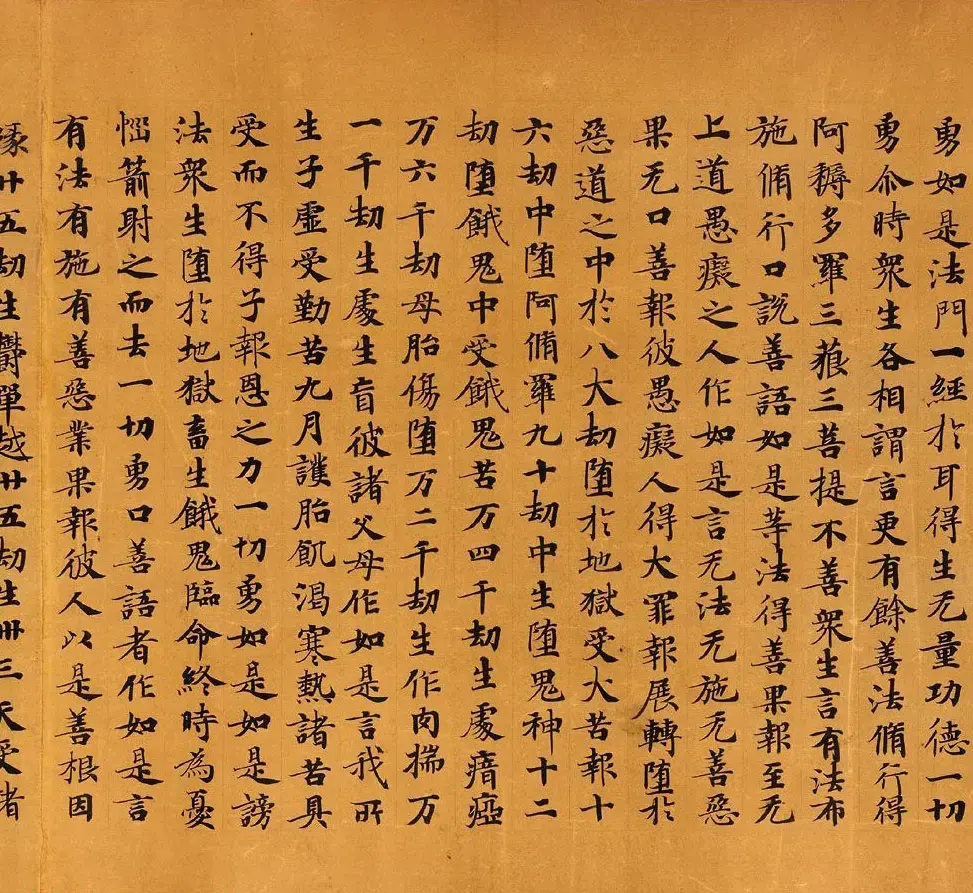 勇如是法門一經於耳得生无量功德一切
勇尒時衆生各相謂言更有餘善法脩行得
阿耨多羅三藐三菩提不善衆生言有法布
施脩行口說善語如是等法得善果報至无
上道愚癡之人作如是言无法无施无善惡
果无口善報彼愚癡人得大罪報展轉墮於
惡道之中於八大劫墮於地獄受大苦報十
六劫中墮阿脩羅九十劫中生墮鬼神十二
劫墮餓鬼中受餓鬼苦万四千劫生處瘖瘂
万六千劫母胎傷墮万二千劫生作肉揣万
一千劫生處生盲彼諸父母作如是言我所
生子虛受勤苦九月護胎飢渴寒熱諸苦具
受而不得子報恩之力一切勇如是如是謗
法衆生墮於地獄畜生餓鬼臨命終時為憂
惱箭射之而去一切勇口善語者作如是言
有法有施有善惡業果報彼人以是善根因
緣廿五劫生欝單越廿五劫生卅三天受諸